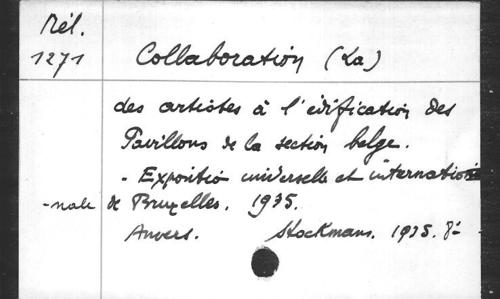 Rél.
1271
Collaboration (La)
des artistes à l'édification des
Pavillons de la section belge.
- Exposition universelle et internatio
-nale de Bruxelles. 1935.
Anvers. Stockmans. 1935. 8°